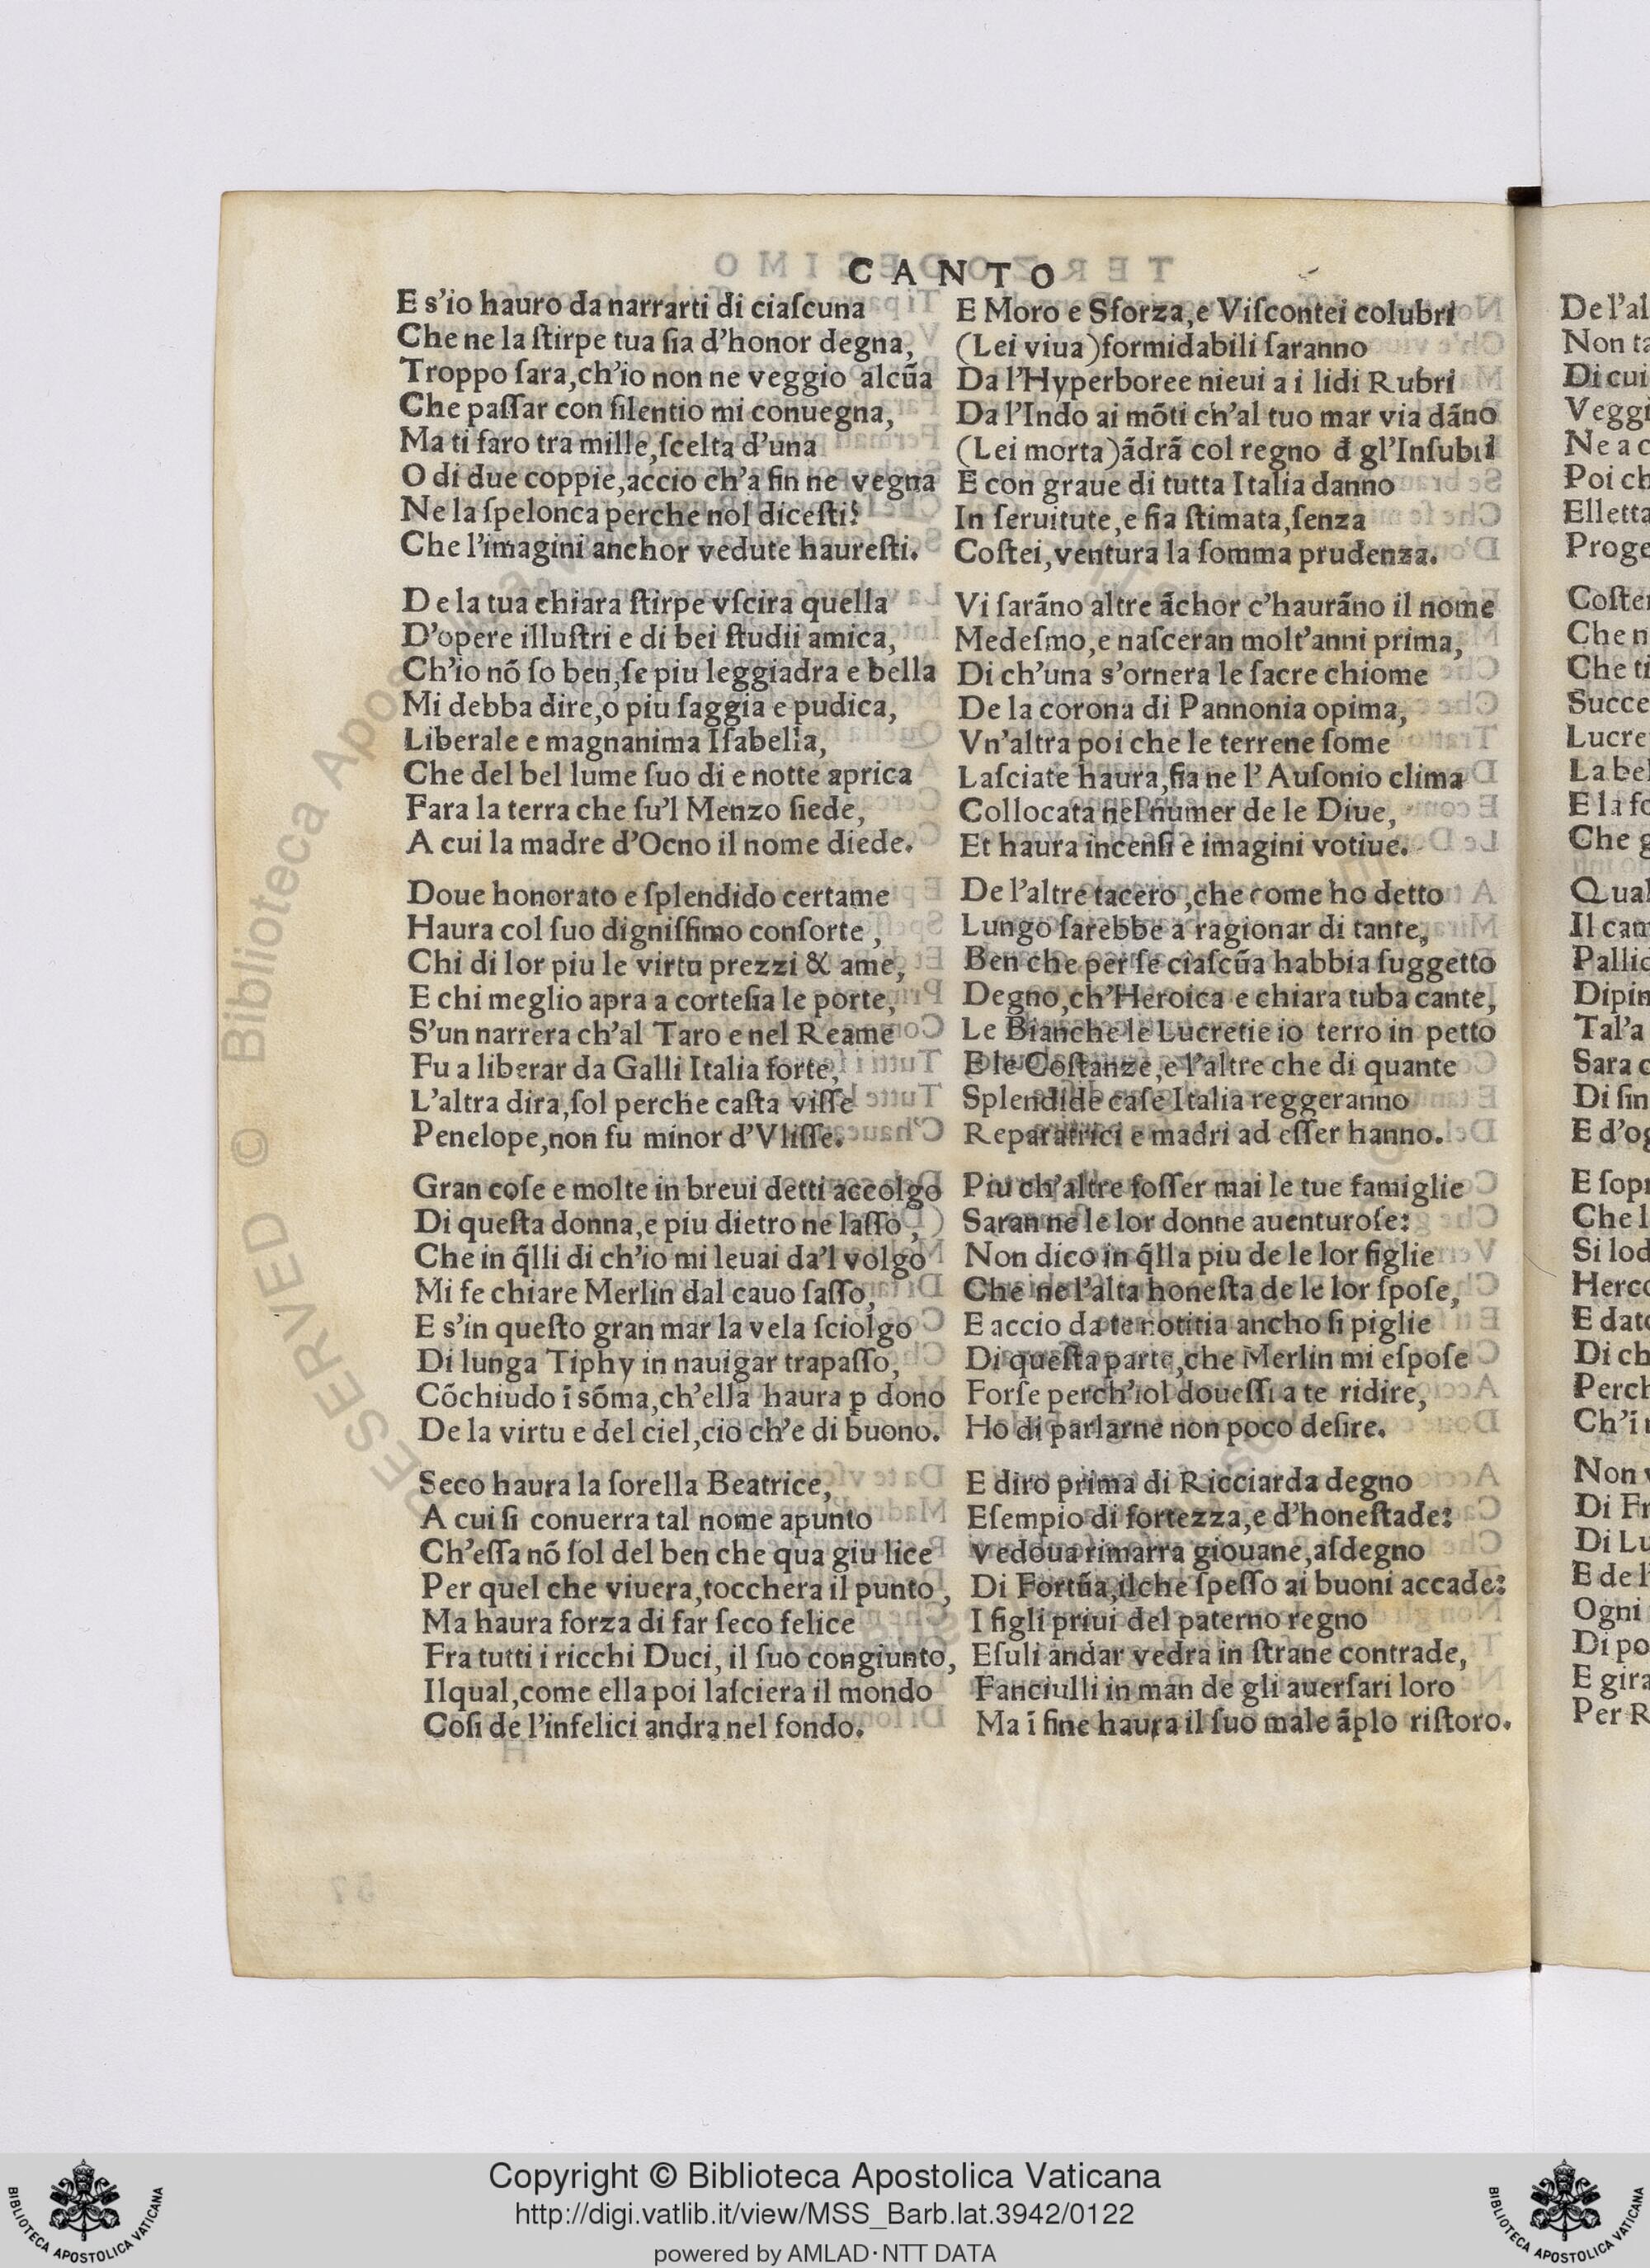 CANTO
E s'io hauro da narrarti di ciaſcuna
Che ne la ſtirpe tua ſia d'honor degna,
Troppo ſara,ch'io non ne veggio alcũa
Che paſſar con ſilentio mi conuegna,
Ma ti faro tra mille,ſcelta d'una
O di due coppie,accio ch'a fin ne vegna
Ne la ſpelonca perche nol diceſti?
Che l'imagini anchor vedute haureſti.
De la tua chiara ſtirpe vſcira quella
D'opere illuſtri e di bei ſtudii amica,
Ch'io nõ ſo ben,ſe piu leggiadra e bella
Mi debba dire,o piu ſaggia e pudica,
Liberale e magnanima Iſabella,
Che del bel lume ſuo di e notte aprica
Fara la terra che ſu'l Menzo ſiede,
A cui la madre d'Ocno il nome diede.
Doue honorato e ſplendido certame
Haura col ſuo digniſſimo conſorte,
Chi di lor piu le virtu prezzi & ame,
E chi meglio apra a corteſia le porte,
S'un narrera ch'al Taro e nel Reame
Fu a liberar da Galli Italia forte,
L'altra dira,ſol perche caſta viſſe
Penelope,non fu minor d'Vliſſe.
Gran coſe e molte in breui detti accolgo
Di queſta donna,e piu dietro ne laſſo,
Che in q̃lli di ch'io mi leuai da'l volgo
Mi fe chiare Merlin dal cauo ſaſſo,
E s'in queſto gran mar la vela ſciolgo
Di lunga Tiphy in nauigar trapaſſo,
Cõchiudo ĩ sõma,ch'ella haura ꝑ dono
De la virtu e del ciel,cio ch'e di buono.
Seco haura la ſorella Beatrice,
A cui ſi conuerra tal nome apunto
Ch'eſſa nõ ſol del ben che qua giu lice
Per quel che viuera,tocchera il punto,
Ma haura forza di far ſeco felice
Fra tutti i ricchi Duci, il ſuo congiunto,
Ilqual,come ella poi laſciera il mondo
Coſi de l'infelici andra nel fondo.
E Moro e Sforza,e Viſcontei colubri
(Lei viua)formidabili ſaranno
Da l'Hyperboree nieui a i lidi Rubri
Da l'Indo ai mõti ch'al tuo mar via dãno
(Lei morta)ãdrã col regno đ gl'Inſubri
E con graue di tutta Italia danno
In ſeruitute,e fia ſtimata,ſenza
Coſtei,ventura la ſomma prudenza.
Vi ſarãno altre ãchor c'haurãno il nome
Medeſmo,e naſceran molt'anni prima,
Di ch'una s'ornera le ſacre chiome
De la corona di Pannonia opima,
Vn'altra poi che le terrene ſome
Laſciate haura,fia ne l'Auſonio clima
Collocata nel numer de le Diue,
Et haura incenſi e imagini votiue.
De l'altre tacero,che come ho detto
Lungo ſarebbe a ragionar di tante,
Ben che per ſe ciaſcũa habbia ſuggetto
Degno,ch'Heroica e chiara tuba cante,
Le Bianche le Lucretie io terro in petto
E le Coſtanze,e l'altre che di quante
Splendide caſe Italia reggeranno
Reparatrici e madri ad eſſer hanno.
Piu ch'altre foſſer mai le tue famiglie
Saran ne le lor donne auenturoſe:
Non dico in q̃lla piu de le lor figlie
Che ne l'alta honeſta de le lor ſpoſe,
E accio da te notitia ancho ſi piglie
Di queſta parte,che Merlin mi eſpoſe
Forſe perch'iol doueſſi a te ridire,
Ho di parlarne non poco deſire.
E diro prima di Ricciarda degno
Eſempio di fortezza,e d'honeſtade:
Vedoua rimarra giouane,aſdegno
Di Fortũa,ilche ſpeſſo ai buoni accade:
I figli priui del paterno regno
Eſuli andar vedra in ſtrane contrade,
Fanciulli in man de gli auerſari loro
Ma ĩ fine haura il ſuo male ãplo riſtoro.
De l'al
Non ta
Di cui
Veggi
Ne a c
Poi ch
Elletta
Proge
Coſter
Che n
Che ti
Succe
Lucre
La bel
E la fo
Che g
Qual
Il cam
Pallid
Dipin
Tal'a
Sara c
Di ſin
E d'og
E ſopr
Che l
Si lod
Herco
E dato
Di ch
Perch
Ch'ĩ
Non v
Di Fr
Di Lu
E de l'
Ogni
Di po
E gira
Per R
RESERVED © Biblioteca Apos
Copyright © Biblioteca Apostolica Vaticana
http://digi.vatlib.it/view/MSS_Barb.lat.3942/0122
powered by AMLAD·NTT DATA
BIBLIOTECA APOSTOLICA VATICANA
BIBLIOTECA APOSTOLICA VATICANA